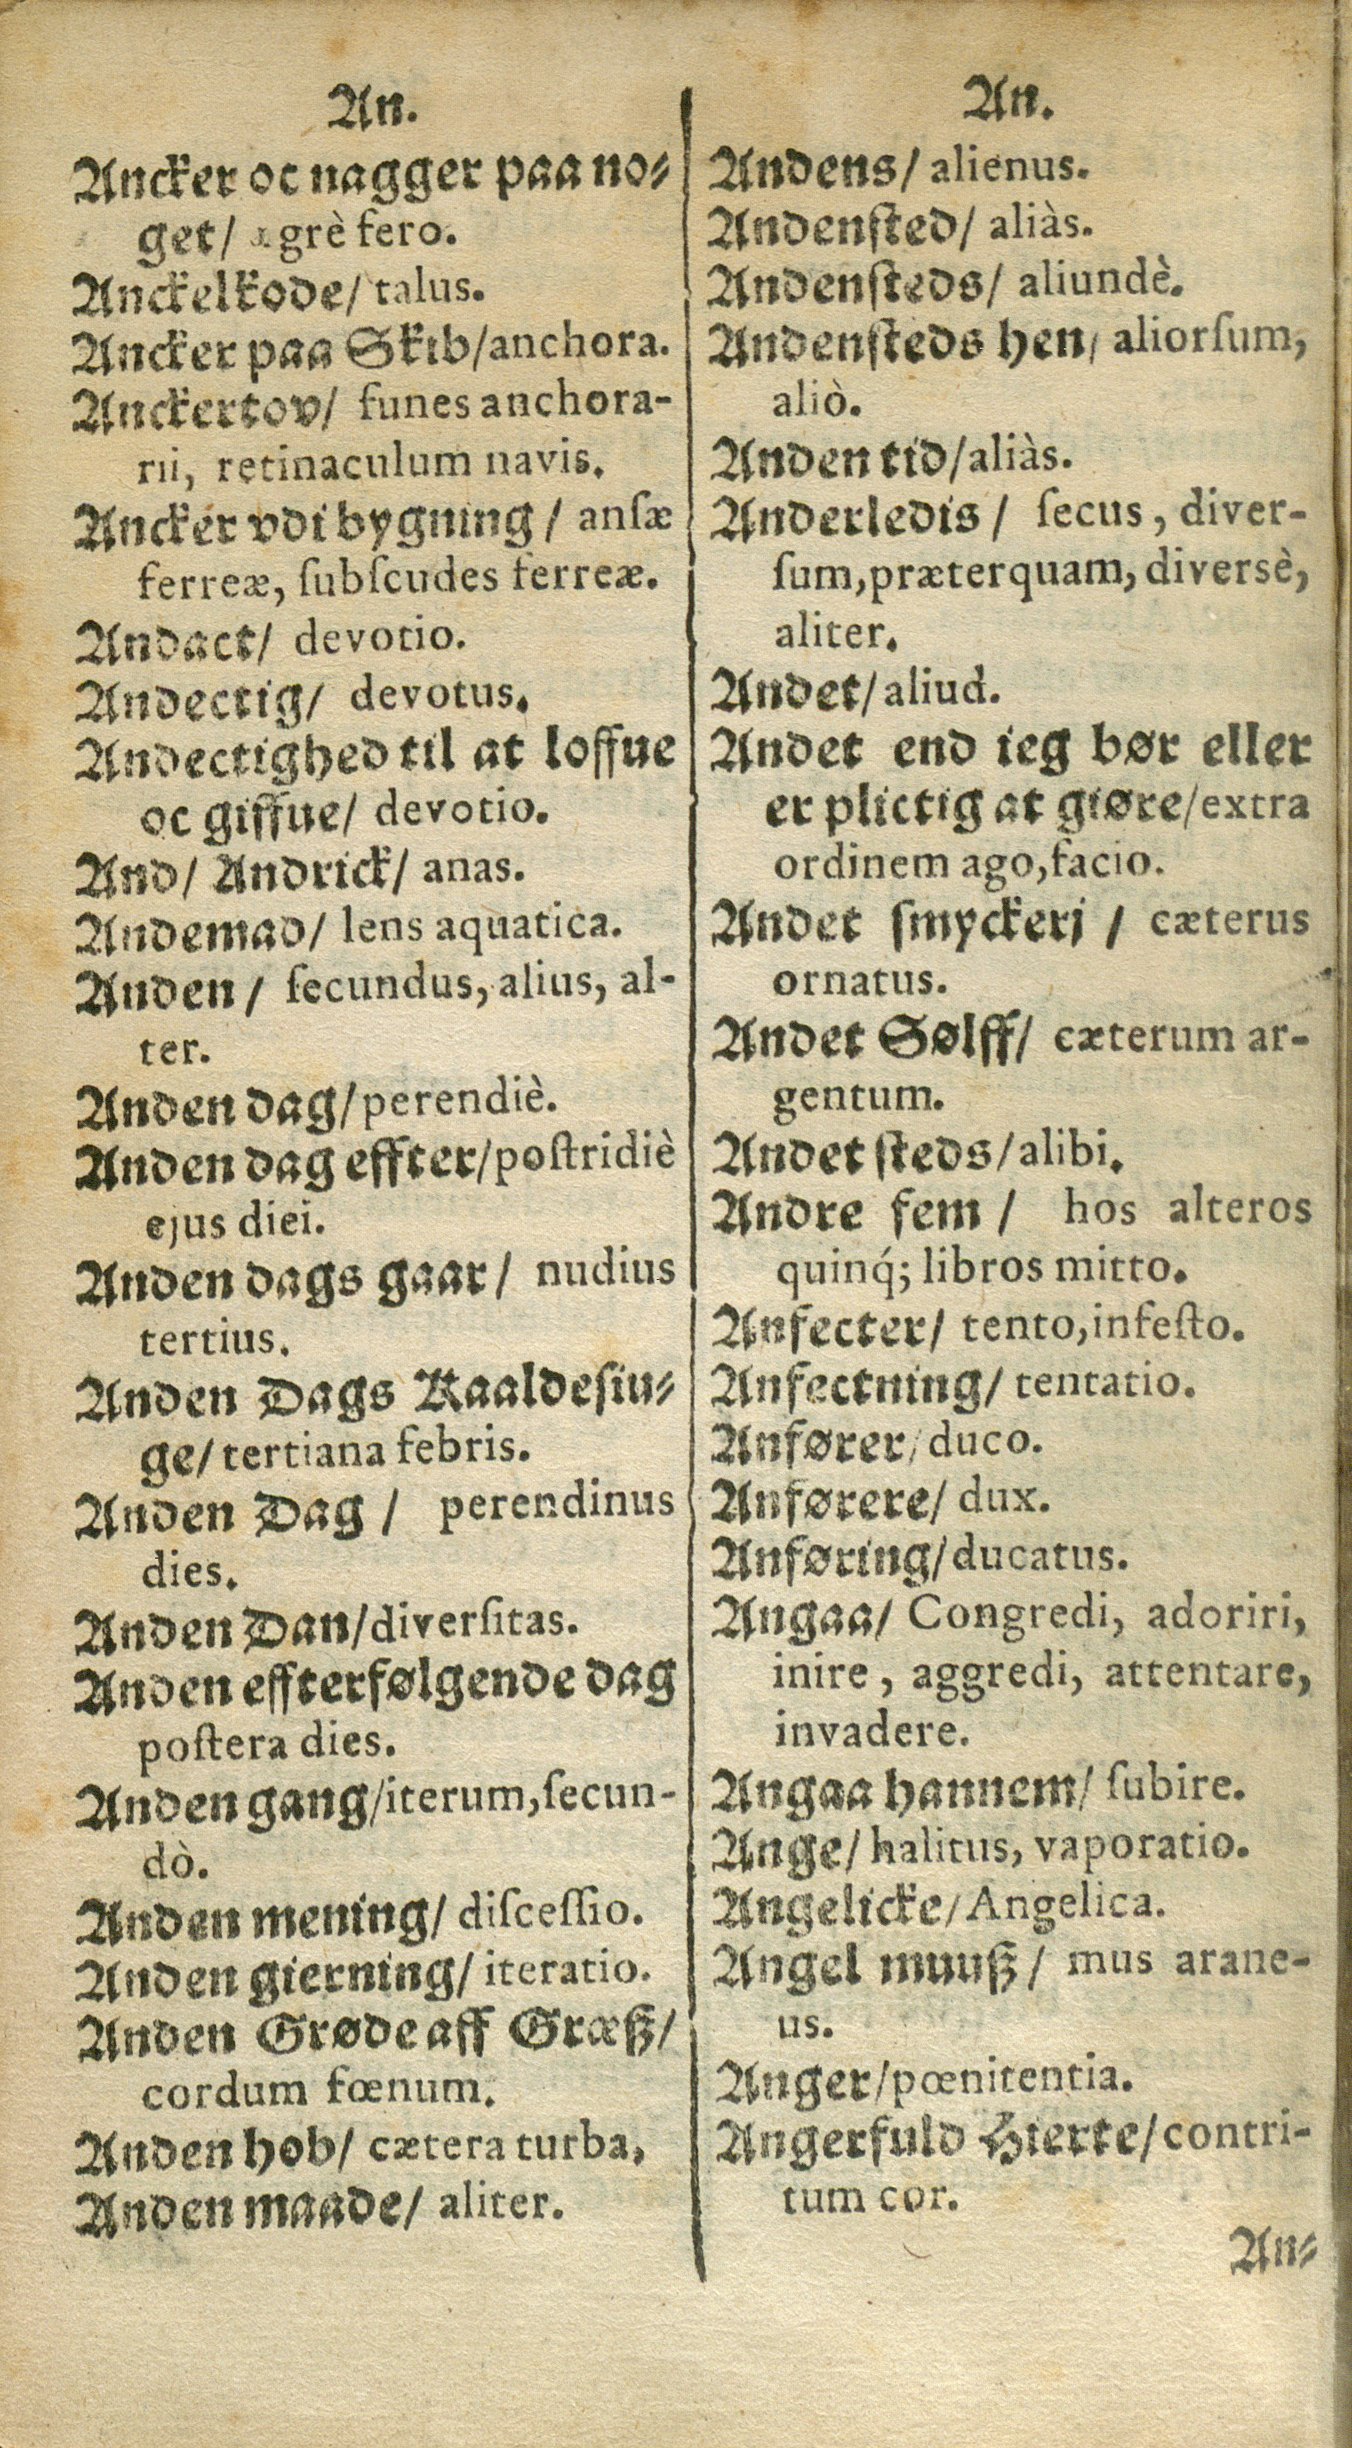 An.
Ancker oc nagger paa no-
get/ ægrè fero.
Anckelkode/ talus.
Ancker paa Skib/anchora.
Anckertov/ funes anchora-
rii, retinaculum navis.
Ancker vdi bygning/ anſæ
ferreæ, ſubſcudes ferreæ.
Andact/ devotio.
Andectig/ devotus.
Andectighed til at loffue
oc giffue/ devotio.
And/ Andrick/ anas.
Andemad/ lens aquatica.
Anden/ ſecundus, alius, al-
ter.
Anden dag/perendiè.
Anden dag effter/poſtridiè
ejus diei.
Anden dags gaar/ nudius
tertius.
Anden Dags Kaaldeſiu-
ge/ tertiana febris.
Anden Dag/ perendinus
dies.
Anden Dan/diverſitas.
Anden effterfølgende dag
poſtera dies.
Anden gang/iterum,ſecun-
dò.
Anden mening/ diſceſſio.
Anden gierning/ iteratio.
Anden Grøde aff Græß/
cordum fœnum.
Anden hob/ cætera turba,
Anden maade/ aliter.
An.
Andens/ alienus.
Andenſted/ aliàs.
Andenſteds/ aliundè.
Andenſteds hen/ aliorſum,
aliò.
Anden tid/aliàs.
Anderledis/ ſecus, diver-
ſum,præterquam, diversè,
aliter.
Andet/aliud.
Andet end ieg bør eller
er plictig at giøre/extra
ordinem ago,facio.
Andet ſmyckerj/ cæterus
ornatus.
Andet Sølff/ cæterum ar-
gentum.
Andet ſteds/alibi.
Andre fem/ hos alteros
quinq́; libros mitto.
Anfecter/ tento,infeſto.
Anfectning/ tentatio.
Anfører/duco.
Anførere/ dux.
Anføring/ducatus.
Angaa/ Congredi, adoriri,
inire, aggredi, attentare,
invadere.
Angaa hannem/ ſubire.
Ange/ halitus, vaporatio.
Angelicke/Angelica.
Angel muuß/ mus arane-
us.
Anger/pœnitentia.
Angerfuld Hierte/contri-
tum cor.
An-